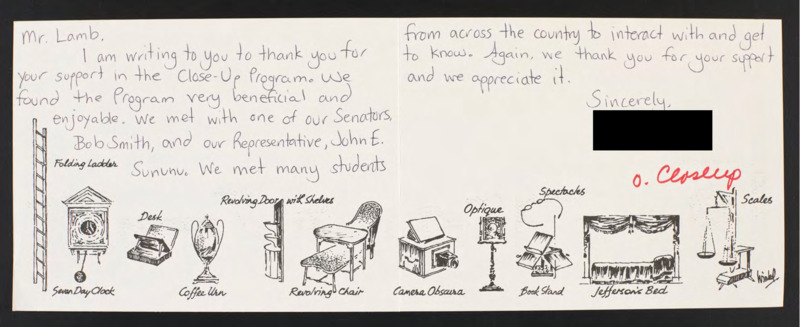 Mr. Lamb,
I am writing to you to thank you for
your support in the Close-Up Program. We
found the Program very beneficial and
enjoyable. We met with one of our Senators,
Bob Smith, and our Representative, John E.
Sununu. We met many students
from across the country to interact with and get
to know. Again, we thank you for your support
and we appreciate it.
Sincerely,
o. Closeup
Folding Ladder
Seven Day Clock
Desk
Coffee Urn
Revolving Door with Shelves
Revolving Chair
Camera Obscura
Optique
Spectacles
Book Stand
Jefferson's Bed
Scales